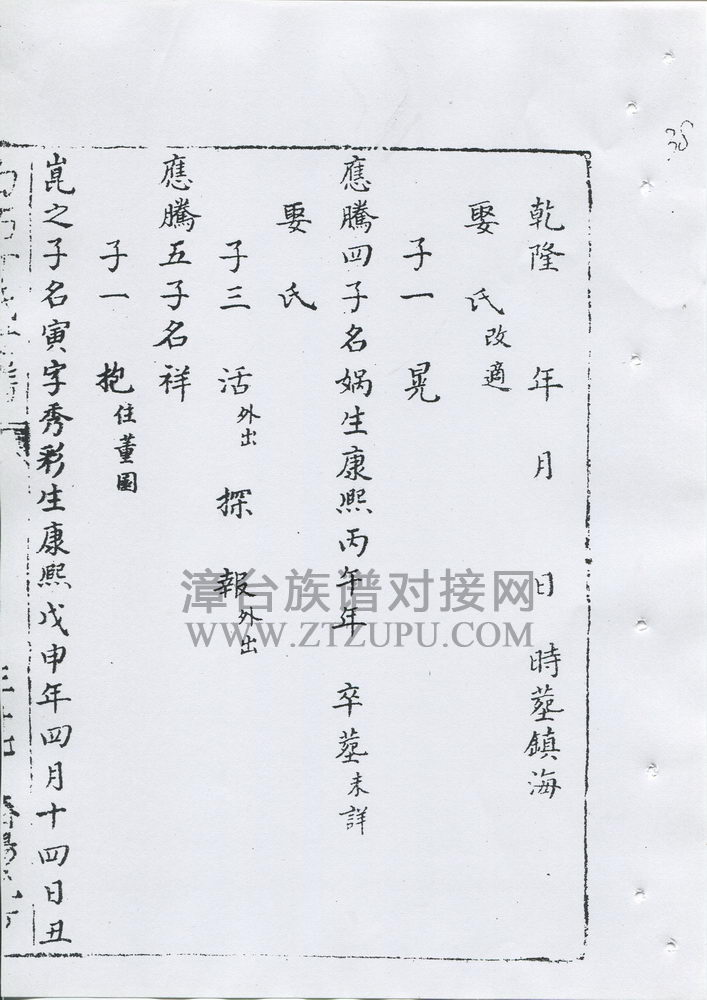 38
乾隆 年 月 日 時塟鎮海
娶氏改適
子一 晃
應騰四子名娲生康熙丙午年 卒塟未詳
娶氏
子三 活外出 探 報外出
應騰五子名祥
子一 抱住董園
崑之子名寅字秀彩生康熙戊申年四月十四日丑
漳台族谱对接网
WWW.ZTZUPU.COM